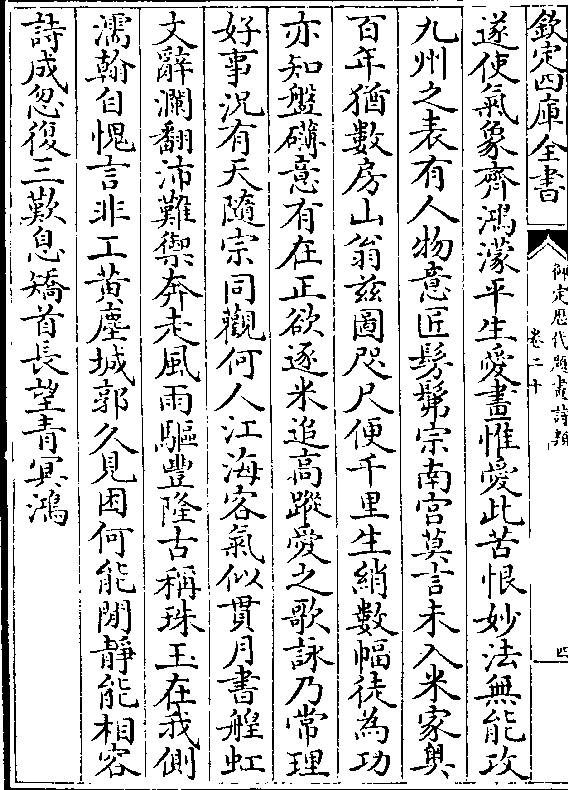 欽定四庫全書
御定歷代題畫詩類
卷二十
四
遂使氣象齊鴻濛平生愛畫惟愛此苦恨妙法無能攻
九州之表有人物意匠髣髴宗南宫莫言未入米家輿
百年猶數房山翁兹圖咫尺便千里生綃數幅徒為功
亦知盤礴意有在正欲逐米追高蹤愛之歌詠乃常理
好事況有天隨宗同觀何人江海客氣似貫月書艖虹
文辭瀾翻沛難禦奔走風雨驅豐隆古稱珠玉在我側
濡翰自愧言非工黄塵城郭久見困何能閒靜能相容
詩成忽復三歎息矯首長望青冥鴻